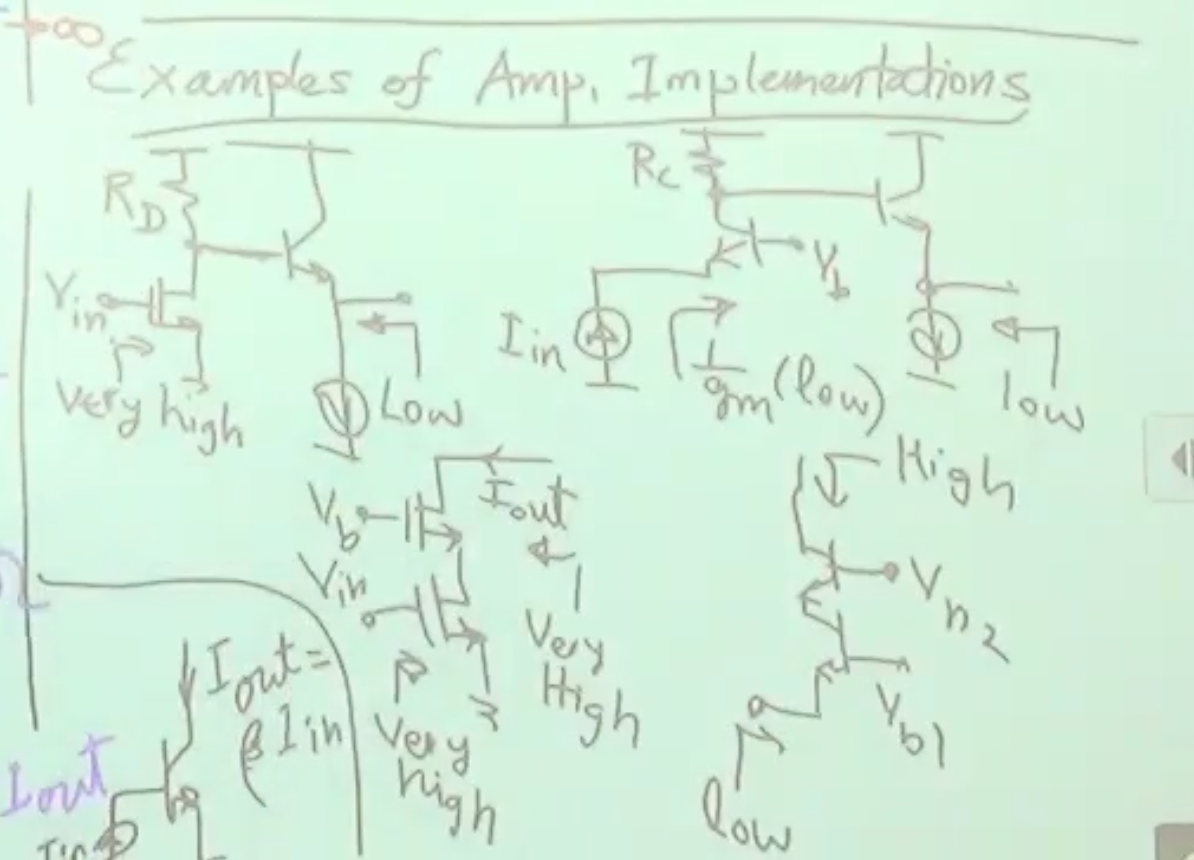 +∞
Examples of Amp. Implementations
RD
Vin
Very high
Low
Rc
Vb
Iin
1/gm (low)
low
Vb
Iout
Vin
Very
High
Very
high
High
Vn2
Vb1
low
Iout =
βIin
Iout
Iin